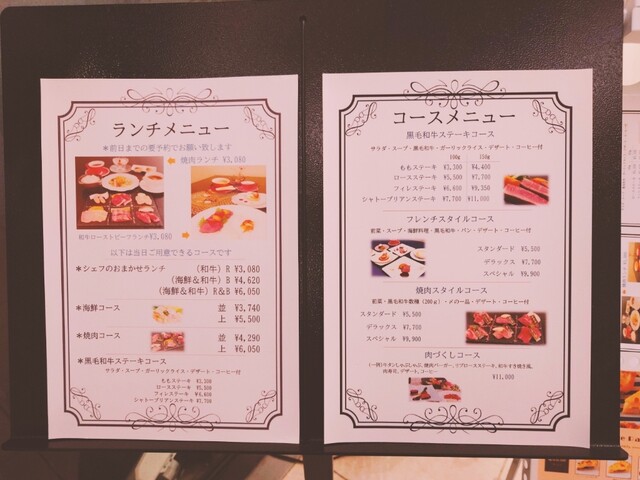 ランチメニュー
＊前日までの要予約でお願い致します
焼肉ランチ ¥3,080
和牛ローストビーフランチ¥3,080
以下は当日ご用意できるコースです
＊シェフのおまかせランチ (和牛) R ¥3,080
(海鮮＆和牛) B ¥4,620
(海鮮＆和牛) R＆B ¥6,050
＊海鮮コース 並 ¥3,740
上 ¥5,500
＊焼肉コース 並 ¥4,290
上 ¥6,050
＊黒毛和牛ステーキコース
サラダ・スープ・ガーリックライス・デザート・コーヒー付
ももステーキ ¥3,300
ロースステーキ ¥5,500
フィレステーキ ¥6,600
シャトーブリアンステーキ ¥7,700
コースメニュー
黒毛和牛ステーキコース
サラダ・スープ・黒毛和牛・ガーリックライス・デザート・コーヒー付
100g 150g
ももステーキ ¥3,300 ¥4,400
ロースステーキ ¥5,500 ¥7,700
フィレステーキ ¥6,600 ¥9,350
シャトーブリアンステーキ ¥7,700 ¥11,000
フレンチスタイルコース
前菜・スープ・海鮮料理・黒毛和牛・パン・デザート・コーヒー付
スタンダード ¥5,500
デラックス ¥7,700
スペシャル ¥9,900
焼肉スタイルコース
前菜・黒毛和牛数種 (200g)・〆の一品・デザート・コーヒー付
スタンダード ¥5,500
デラックス ¥7,700
スペシャル ¥9,900
肉づくしコース
(一例)牛タンしゃぶしゃぶ、焼肉バーガー、リブロースステーキ、和牛すき焼き風、
肉寿司、デザート、コーヒー
¥11,000